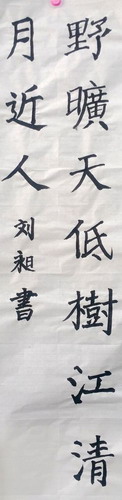 野曠天低樹江清
月近人
刘昶書